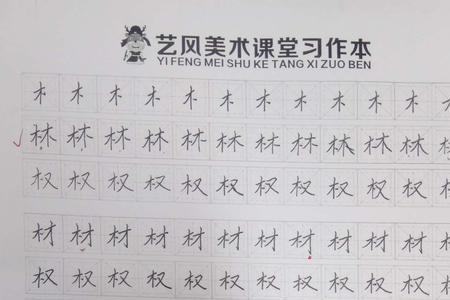 艺风美术课堂习作本
YI FENG MEI SHU KE TANG XI ZUO BEN
木 木 木 木 木 木 木 木 木 木 木 木
林 林 林 林 林 林 林 林 林 林 林 林
权 权 权 权 权 权 权 权 权 权 权 权
材 材 材 材 材 材 材 材 材 材 材 材
权 权 权 权 权 权 权 权 权 权 权 权